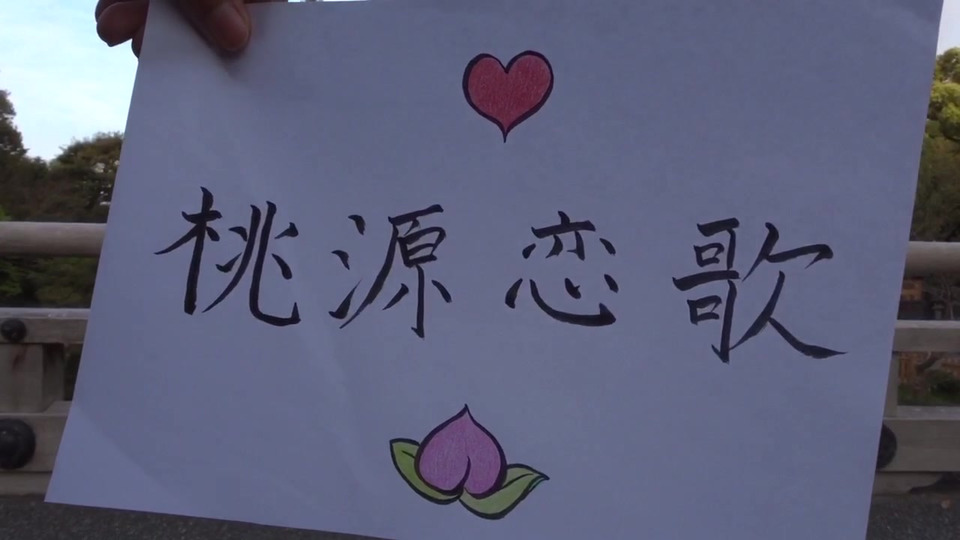 桃源恋歌